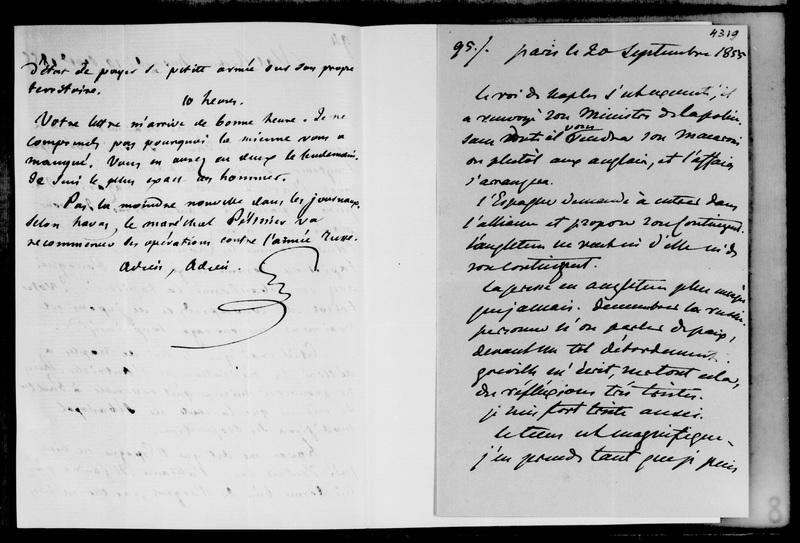 d'état de payer sa petite armée sur son propre
territoire.
10 heures.
Votre lettre m'arrive de bonne heure. Je ne
comprends pas pourquoi la mienne vous a
manqué. Vous en aurez eu deux le lendemain.
Je suis le plus exact des hommes.
Pas la moindre nouvelle dans les journaux.
Selon havas, le maréchal Pélissier va
recommencer des opérations contre l'armée russe.
Adieu, Adieu.
4319
95/. paris le 20 Septembre 1855
le roi de Naples s'est repenti, il
a renvoyé son Ministre de la police,
sans doute il vous son macaroni
ou plutôt aux anglais, et l'affaire
s'arrangera.
l'Espagne demande à entrer dans
l'alliance et propose son contingent.
l'angleterre ne veut ni d'elle ni de
son contingent.
la presse en angleterre plus
que jamais. démembrer la russie.
personne n'ose parler de paix,
devant un tel débordement.
greville m'écrit, sur tout cela,
des réfléxions très tristes.
je suis fort triste aussi.
le tems est magnifique.
j'en prends tant que je puis